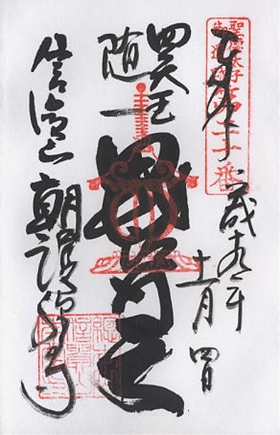 聖徳太子
御遺跡第二十番
奉拝
十一月四日
四天王
随一
毘沙門天
信貴山 朝護孫子寺